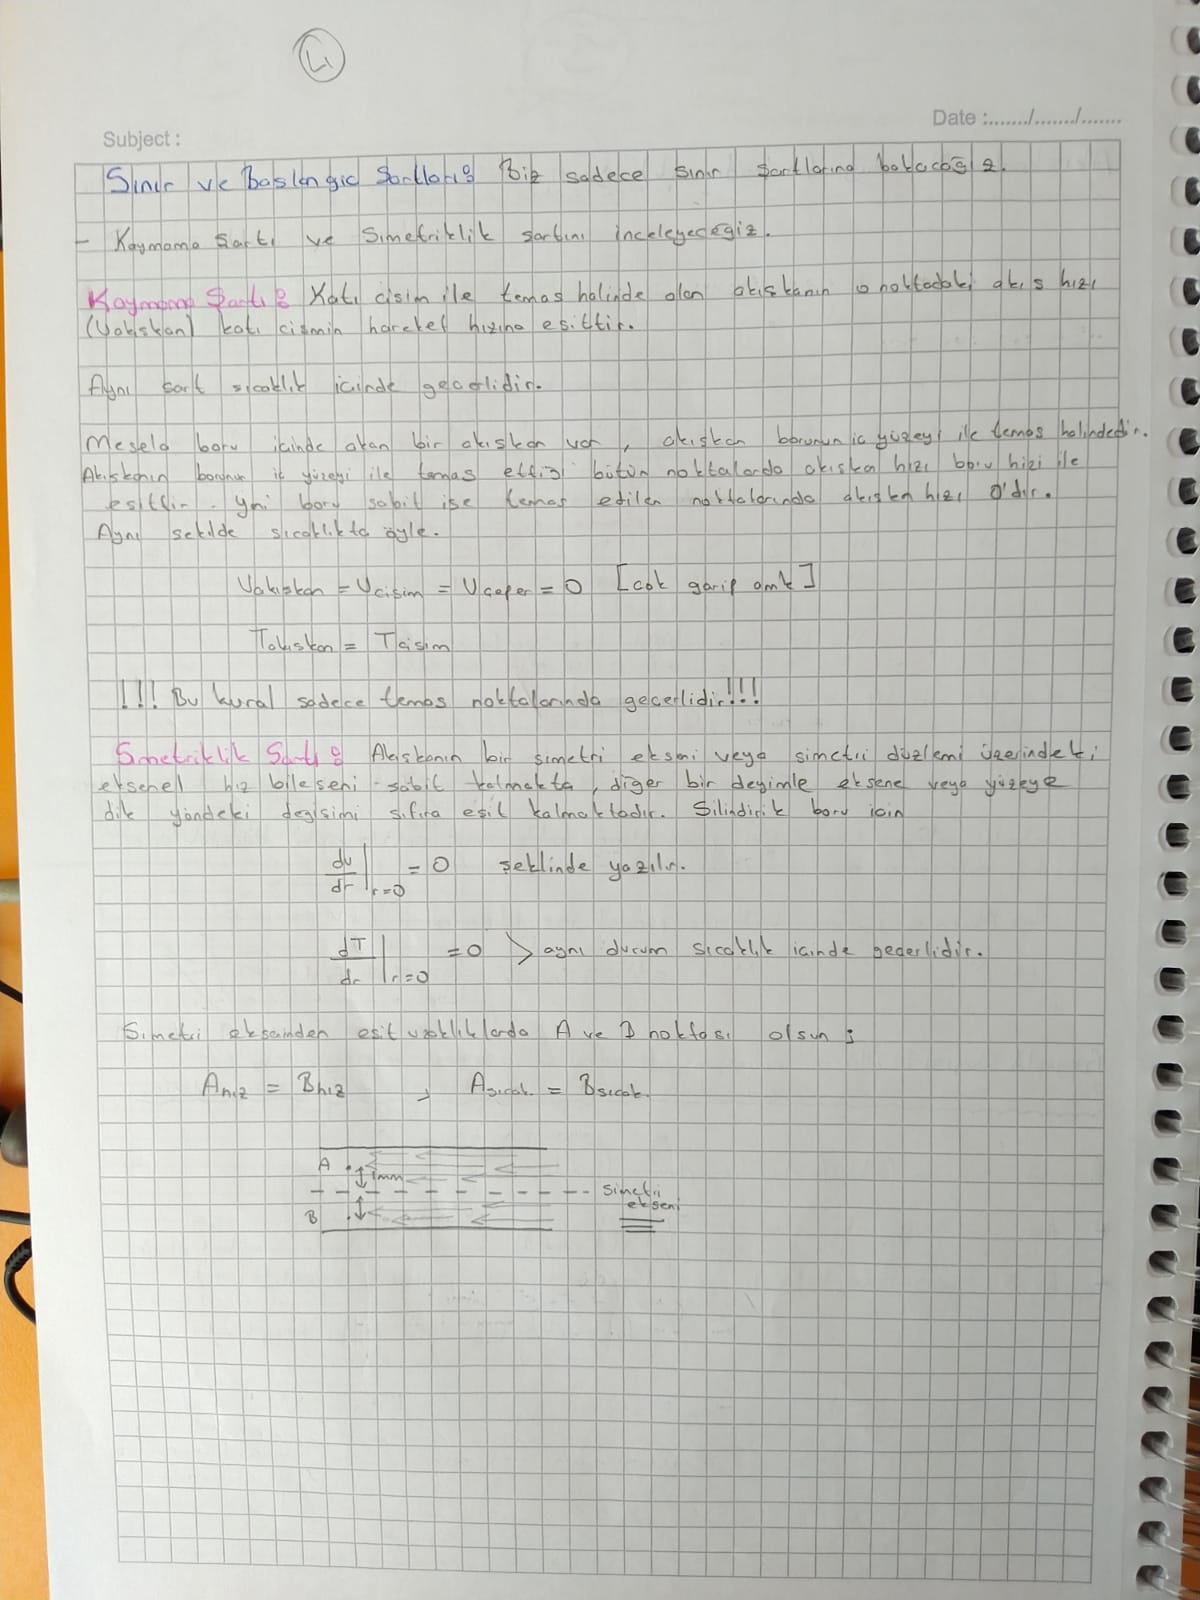 4
Date :......./......./.......
Subject :
Sınır ve Baslangıc Şartları: Biz sadece sınır şartlarına bakacağız.
- Kaymama Şartı ve Simetriklik şartını inceleyeceğiz.
Kaymama Şartı: Katı cisim ile temas halinde olan akıskanın o noktadaki akıs hızı
(Uakıskan) katı cismin hareket hızına esittir.
Aynı şart sıcaklık icinde gecerlidir.
Mesela boru icinde akan bir akıskan var, akıskan borunun ic yüzeyi ile temas halindedir.
Akıskanın borunun iç yüzeyi ile temas ettiği bütün noktalarda akıskan hızı boru hizi ile
esittir. Yni boru sabit ise temas edilen noktalarında akısken hızı 0'dır.
Aynı sekilde sıcaklıkta öyle.
Uakıskan = Ucisim = Uceper = 0 [cok garip amk]
Takıskan = Tcisim
!!! Bu kural sadece temas noktalarında gecerlidir!!!
Simetriklik Şartı: Akıskanın bir simetri ekseni veya simetri düzlemi üzerindeki
eksenel hız bileseni sabit kalmakta, diğer bir deyimle eksene veya yüzeye
dik yöndeki degisimi sıfıra esit kalmaktadır. Silindirik boru icin
du/dr |r=0 = 0 şeklinde yazılır.
dT/dr |r=0 = 0 > aynı durum sıcaklık icinde gecerlidir.
Simetri eksenınden esit uzaklıklarda A ve B noktası olsun ;
Ahız = Bhız , Asıcak. = Bsıcak.
A
1mm
simetri
ekseni
B